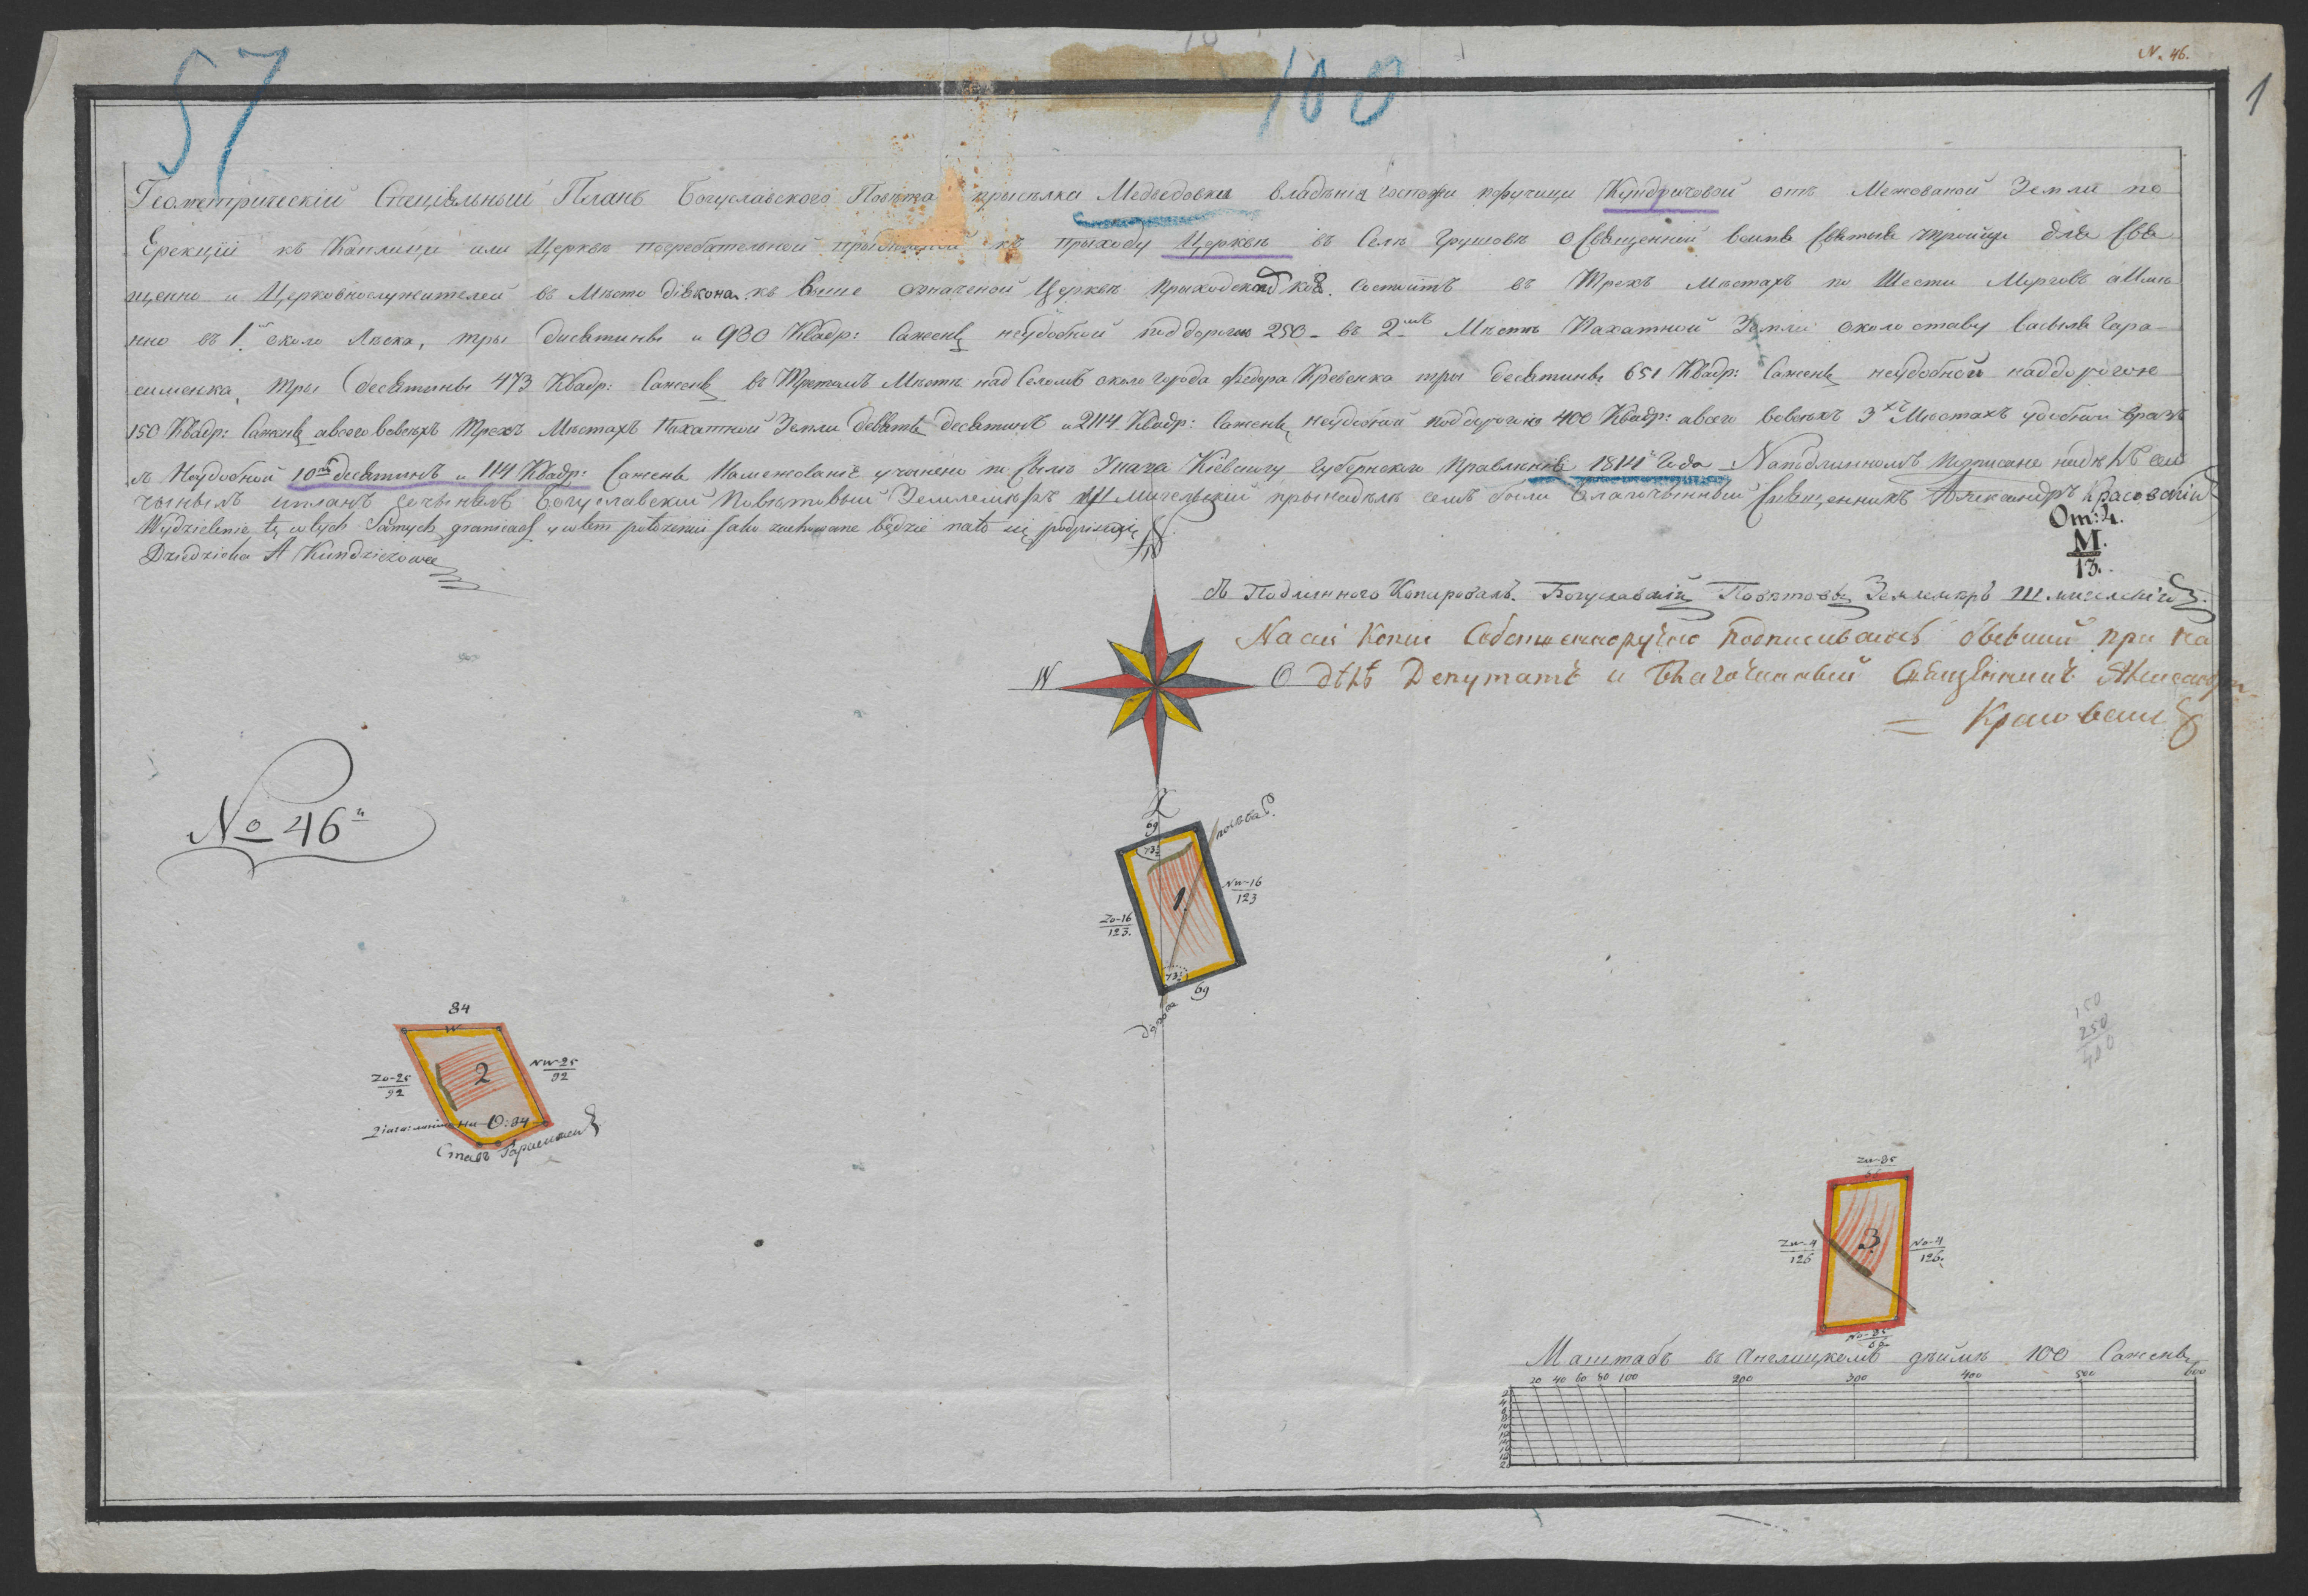 N. 46.
1
57
100
Геометрическій Спеціальный Планъ Богуславского Повѣта присѣлка Медведовки владѣнія госпожи поручици Кундричовой отъ Межованой Земли по
Ерекціи къ Каплици или Церквѣ погребательной къ прыходу Церквѣ въ Селѣ Грушовъ Освященной во имя Святыя Тройци для Свя
щенно и Церковнослужителей въ Мѣсто діякона къ выше означеной Церквѣ Состоитъ въ Трехъ Мѣстахъ по Шести Мурговъ аимен
нно въ 1й около Лѣска, тры десятины и 980 Квадр: Сажень неудобной под дорогою 250 - въ 2мъ Мѣстѣ Пахатной Земли около ставу Васыля Гара-
сименка, тры десятины 473 Квадр: Сажень въ Третомъ Мѣстѣ над Селомъ около города Федора Кревенка тры десятины 651 Квадр: Сажень неудобной под дорогою
150 Квадр: Сажень авсего вовсѣхъ Трехъ Мѣстахъ Пахатной Земли девять десятинъ и 2114 Квадр: Сажень, неудобной под дорогою 400 Квадр: авсего вовсѣхъ 3хъ Мѣстахъ удобной вразъ
съ Неудобной 10ть десятинъ и 114 Квадр: Сажень Намежованіе учынено Указа Кіевского Губернского Правленія 1814 Года Наподлинномъ Подписано надѣлъ сей
чынылъ ипланъ сочынялъ Богуславскій Повѣтовый Землемѣръ Шмигельскій прынадѣлѣ семъ были Благочынный Священникъ Александръ Красовскій
Wydzielenie tę w tych samych granicach y w tem położeniu jako zachowane będzie nato się podpisuję
Dziedziczka A Kundziczowa
От: 4.
М.
13.
съ Подлинного Копировалъ. Богуславскій Повѣтовый Землемѣръ Шмигелскій
На сей Копіи Собственноручно Подписиваюсь бывшій при на
дѣлѣ Депутатъ и Благочинный Священникъ Александръ
Красовскій
N
W
O
Z
No 46й
69
73½
1.
Nw-16
123
Zo-16
123.
73½
69
дорога
84
W
Zo-25
92
2
Nw-25
92
На O: 84
Ставъ Гарасименка
150
250
400
Zw-85
Zw-4
126
3.
No-4
126.
No-85
Маштабъ въ Англицкомъ дюймѣ 100 Сажень
20 40 60 80 100 200 300 400 500 600
2
4
6
8
10
12
14
16
18
20